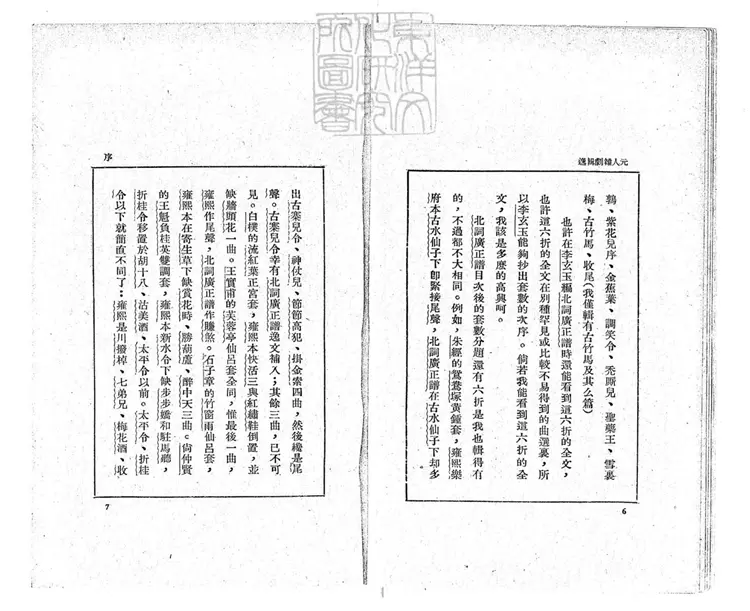 東洋文
化研究
所圖書
元人雜劇輯逸
鵪、紫花兒序、金蕉葉、調笑令、禿廝兒、聖藥王、雪裏
梅、古竹馬、收尾(我僅輯有古竹馬及其么篇)
也許在李玄玉編北詞廣正譜時還能看到這六折的全文,
也許這六折的全文在別種罕見或比較不易得到的曲選裏,所
以李玄玉能夠抄出套數的次序。倘若我能看到這六折的全
文,我該是多麼的高興呵。
北詞廣正譜目次後的套數分題還有六折是我也輯得有
的,不過都不大相同。例如,朱經的鴛鴦塚黃鍾套,雍熙樂
府本古水仙子下卽緊接尾聲,北詞廣正譜在古水仙子下却多
6
序
出古寨兒令、神仗兒、節節高犯、掛金索四曲,然後纔是尾
聲。古寨兒令幸有北詞廣正譜逸文補入;其餘三曲,已不可
見。白樸的流紅葉正宮套,雍熙本快活三與紅繡鞋倒置,並
缺牆頭花一曲。王實甫的芙蓉亭仙呂套全同,惟最後一曲,
雍熙作尾聲,北詞廣正譜作賺煞。石子章的竹窗雨仙呂套,
雍熙本在寄生草下缺賞花時、勝葫蘆、醉中天三曲。尙仲賢
的王魁負桂英雙調套,雍熙本新水令下缺步步嬌和駐馬聽,
折桂令移置於胡十八、沽美酒、太平令以前。太平令、折桂
令以下就簡直不同了:雍熙是川撥棹、七弟兄、梅花酒、收
7